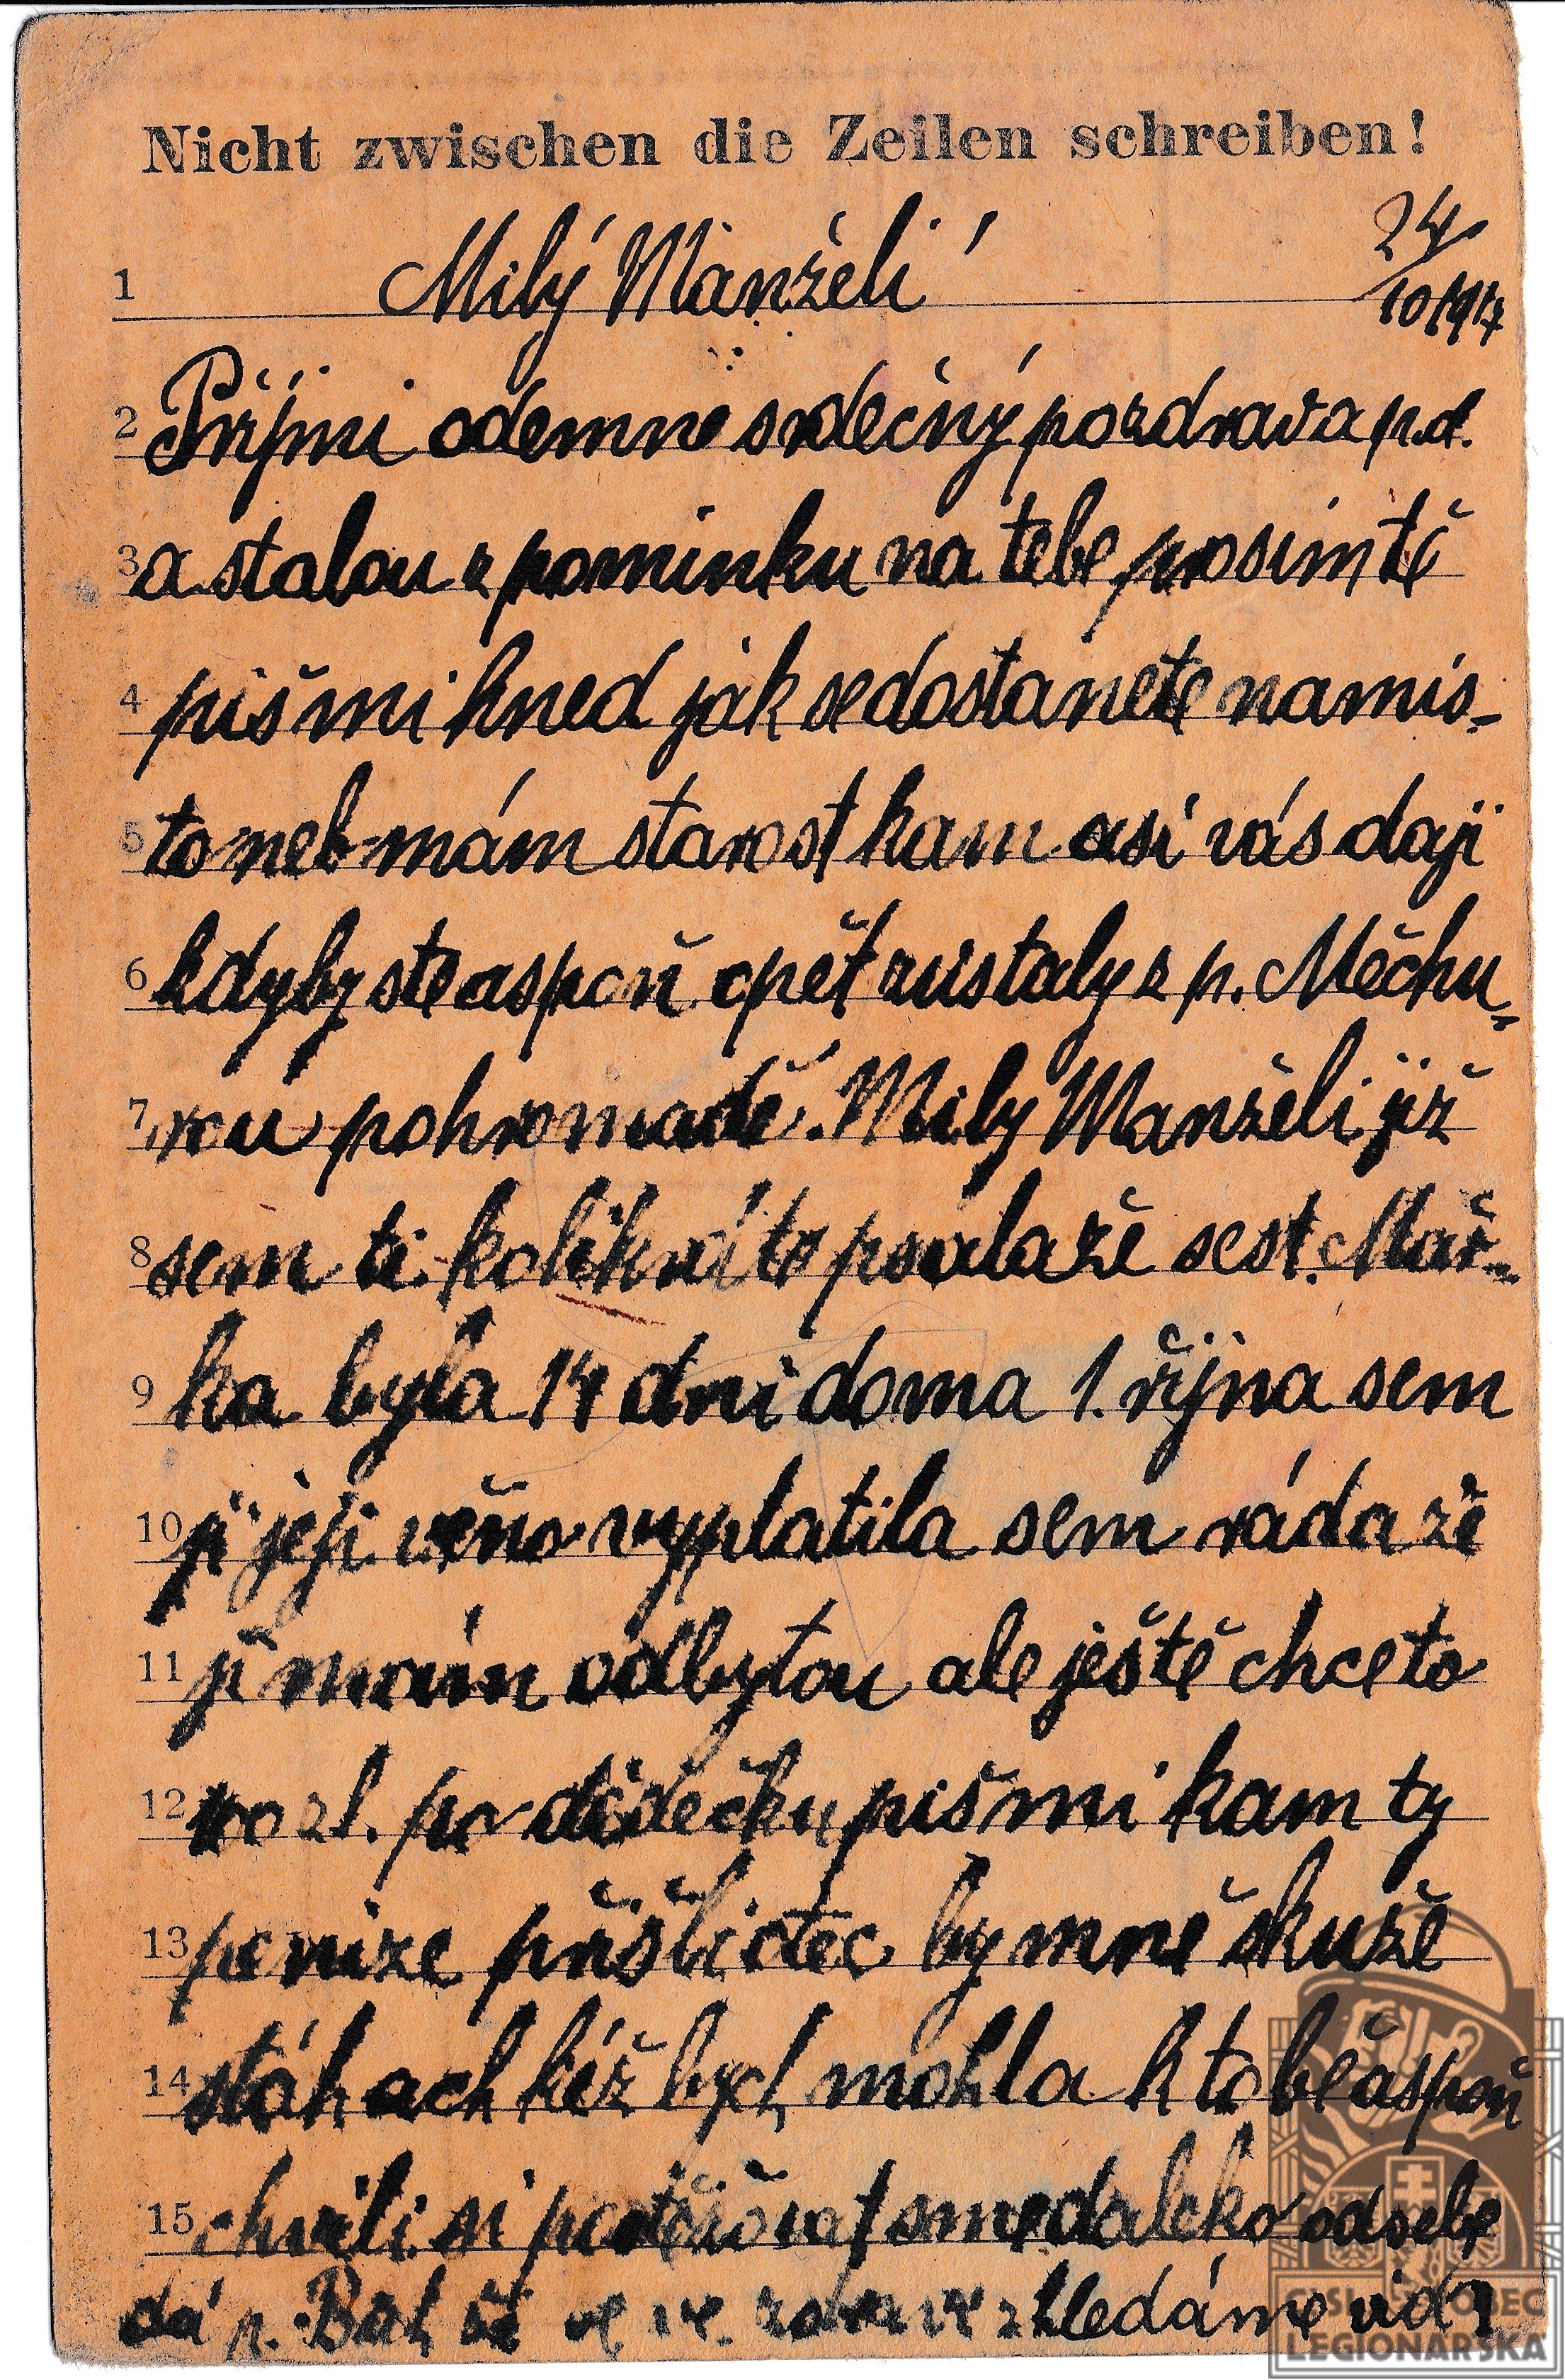 Nicht zwischen die Zeilen schreiben!
24/10 1917
1 Milý Manželi
2 Přijmi odemne srdečný pozdrav a p.d.
3 a stalou zpominku na tebe prosim tě
4 piš mi hned jak se dostanete na mis-
5 to neb mám starost kam asi vás daji
6 kdyby ste aspoň opět zustaly z p. Měchu-
7 rou pohromadě. Milý Manželi již
8 sem ti kolikráte psala že sest. Mař-
9 ka byla 14 dni doma 1. řijna sem
10 ji jeji věno vyplatila sem ráda že
11 ji mám odbytou ale ještě chce to
12 zl. po dědečku piš mi kam ty
13 penize přišli otec by mně s kuže
14 stáh ach kéž bych mohla k tobě aspoň
15 chvili si postěžovat sme daleko od sebe
dá p. Bůh že se ve zdravi shledáme
ČSL. OBEC
LEGIONÁŘSKÁ